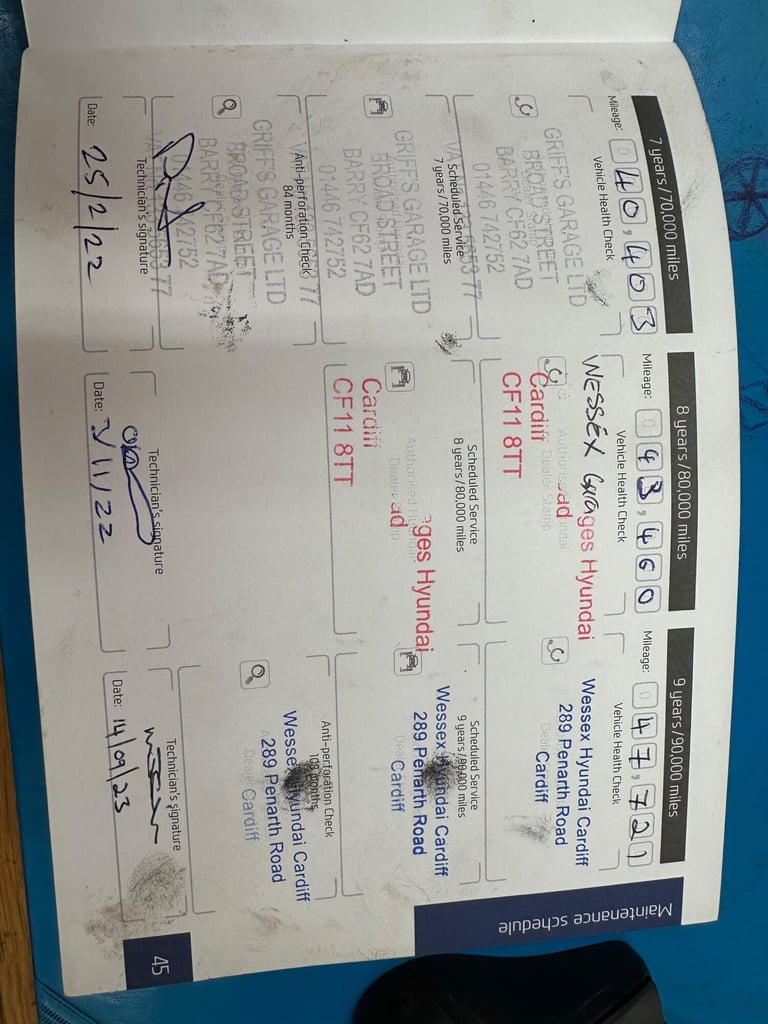 Maintenance schedule
7 years/70,000 miles
Mileage: 0 40,403
Vehicle Health Check
GRIFF'S GARAGE LTD
BROAD STREET
BARRY CF62 7AD
01446 742752
Scheduled Service
7 years/70,000 miles
GRIFF'S GARAGE LTD
BROAD STREET
BARRY CF62 7AD
01446 742752
Anti-perforation Check
84 months
GRIFF'S GARAGE LTD
BROAD STREET
BARRY CF62 7AD
01446 742752
Technician's signature
Date: 25/2/22
8 years/80,000 miles
Mileage: 0 43,460
Vehicle Health Check
WESSEX Garages Hyundai
ad
Cardiff
CF11 8TT
Authorised Hyundai
Dealer Stamp
Scheduled Service
8 years/80,000 miles
ges Hyundai
ad
Cardiff
CF11 8TT
Technician's signature
Date: 3/11/22
9 years/90,000 miles
Mileage: 0 47,721
Vehicle Health Check
Wessex Hyundai Cardiff
289 Penarth Road
Cardiff
Scheduled Service
9 years/90,000 miles
Wessex Hyundai Cardiff
289 Penarth Road
Cardiff
Anti-perforation Check
108 months
Wessex Hyundai Cardiff
289 Penarth Road
Cardiff
Technician's signature
Date: 14/09/23
45